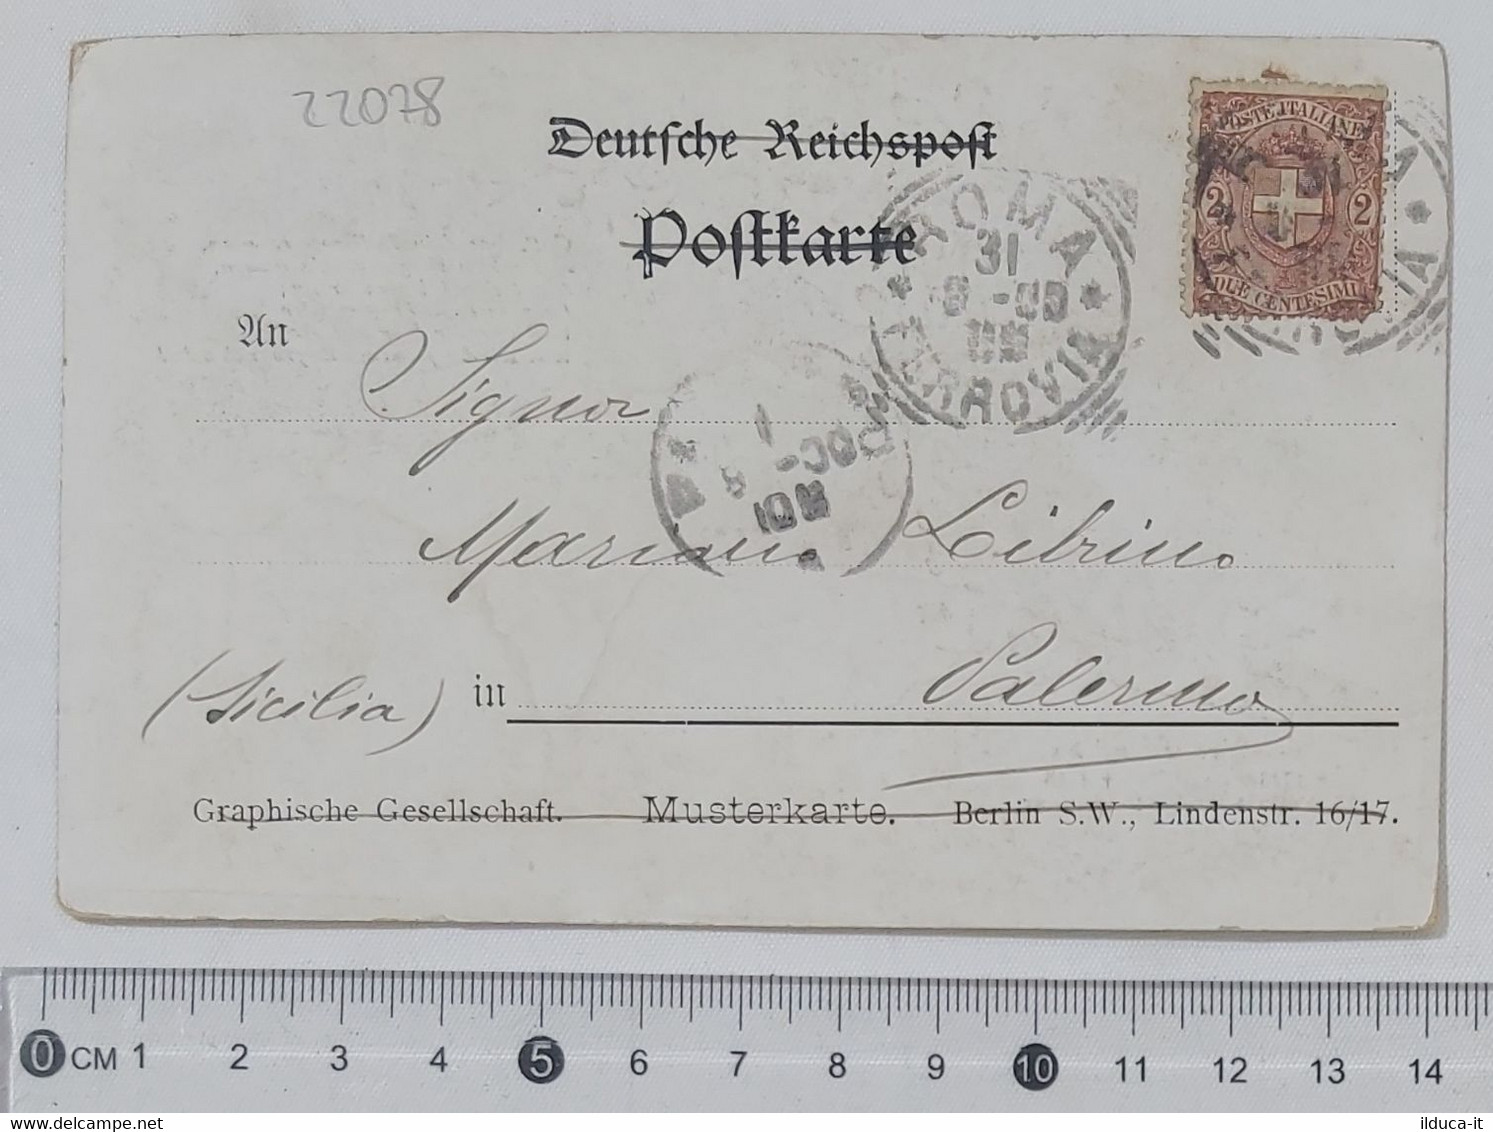 22078
Deutsche Reichspost
Postkarte
POSTE ITALIANE
2 2
DUE CENTESIMI
ROMA
31
FERROVIA
An
Signor
Mariano Librino
(Sicilia) in Palermo
Graphische Gesellschaft. Musterkarte. Berlin S.W., Lindenstr. 16/17.
0 CM 1 2 3 4 5 6 7 8 9 10 11 12 13 14
delcampe.net
ilduca-it